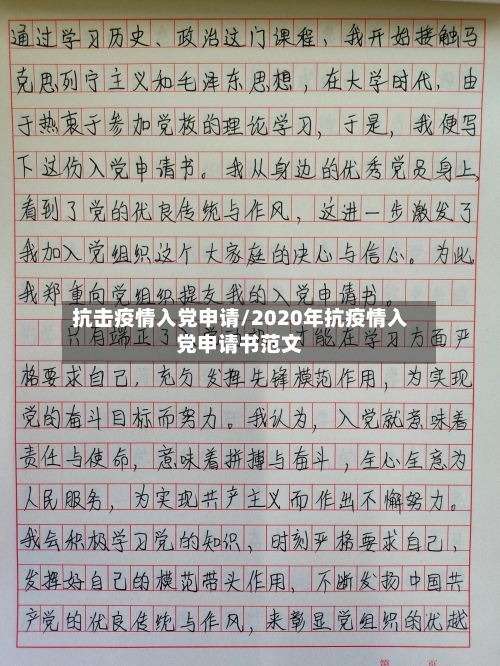 通过学习历史、政治这门课程，我开始接触马
克思列宁主义和毛泽东思想，在大学时代，由
于热衷于参加党校的理论学习，于是，我便写
下这份入党申请书。我从身边的优秀党员身上，
看到了党的优良传统与作风，这进一步激发了
我加入党组织这个大家庭的决心与信心。为此，
我郑重向党组织提交我的入党申请书。
抗击疫情入党申请/2020年抗疫情入
党申请书范文
只有端正了 才能在学习方面严
格要求自己，充分发挥先锋模范作用，为实现
党的奋斗目标而努力。我认为，入党就意味着
责任与使命，意味着拼搏与奋斗，全心全意为
人民服务，为实现共产主义而作出不懈努力。
我会积极学习党的知识，时刻严格要求自己，
发挥好自己的模范带头作用，不断发扬中国共
产党的优良传统与作风，来彰显党组织的优越
第 页